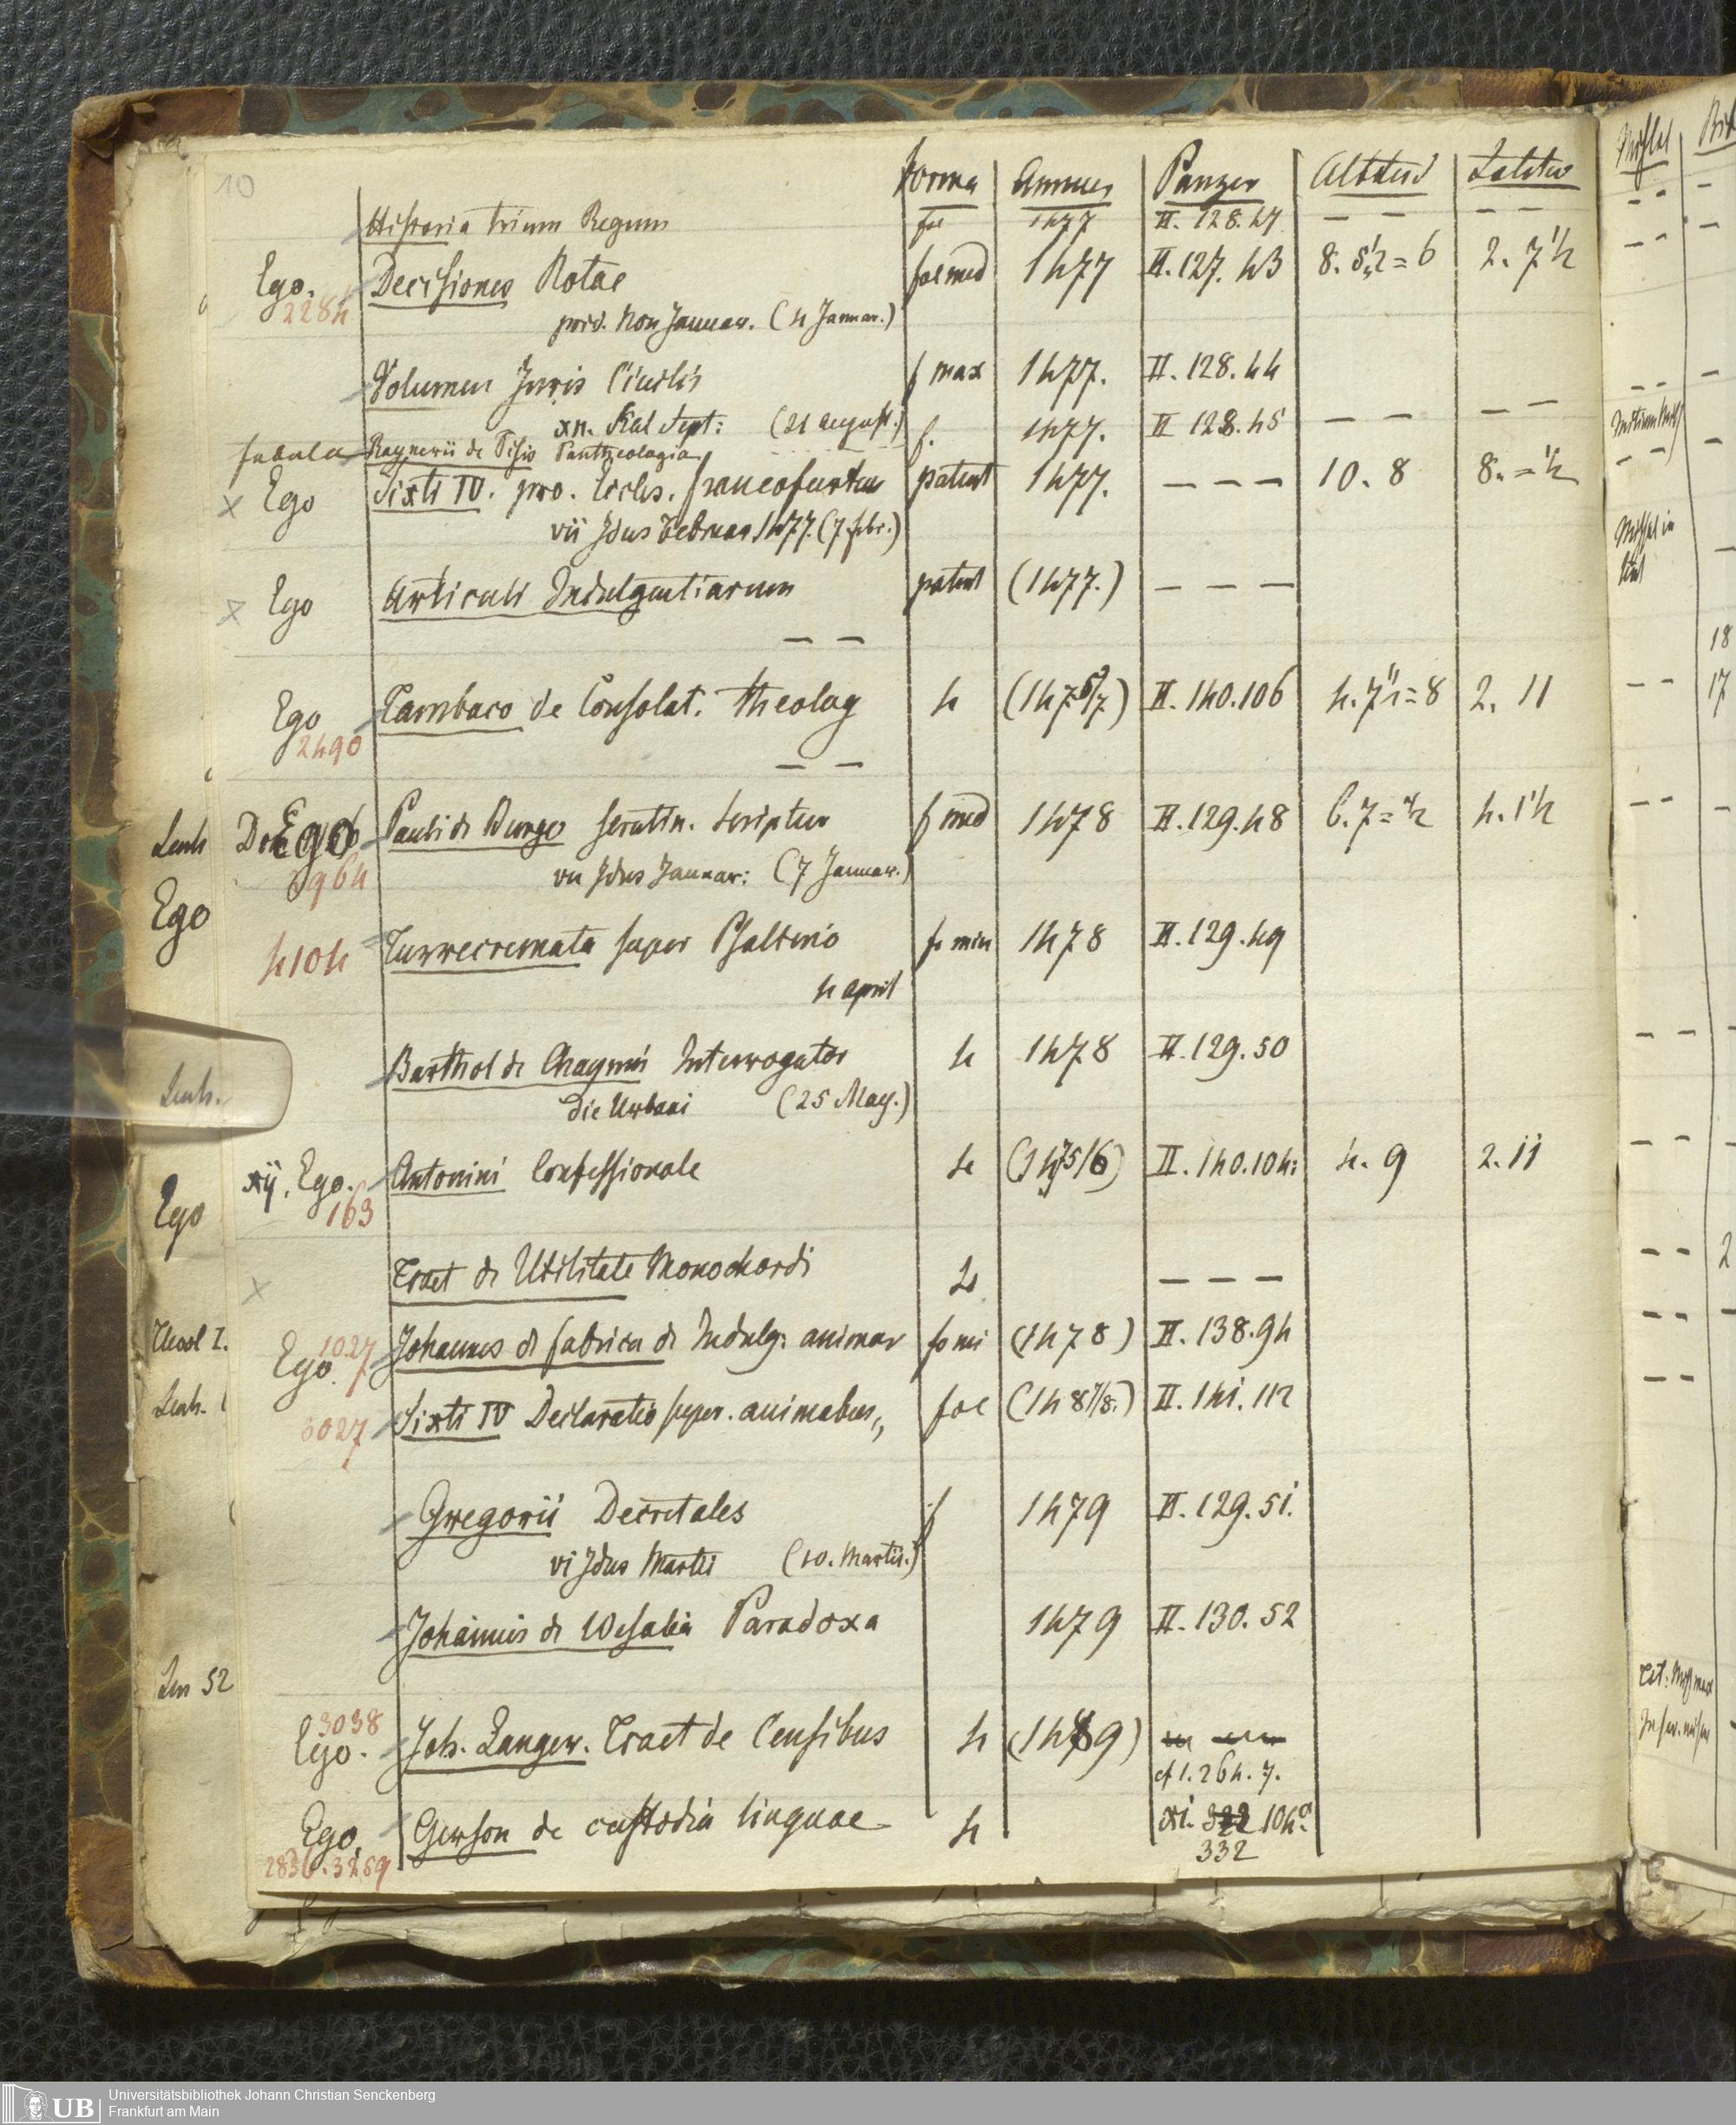 10 forma Annus Panzer Altitud Latitu
Historia trium Regum fol 1477 II. 128. 47 – – – –
Ego. Decisiones Rotae fol med 1477 II. 127. 43 8. 5½ = 6 2. 7½
2284 prid. Non Januar. (4 Januar.)
Volumen Juris Civilis f max 1477. II. 128. 44
xii. Kal Sept: (21 August.)
fabula Raynerii de Pisis Pantheologia f. 1477. II 128. 45 – – – –
x Ego Sixti IV. pro. Eccles. francofurten patent 1477. – – – 10. 8 8. = ½
vii Idus Februar 1477. (7 febr.)
x Ego Articuli Indulgentiarum patent (1477.) – – –
– –
Ego Tambaco de Consolat. theolog 4 II. 140. 106 4. 7½ = 8 2. 11
2490
– –
Ego Pauli de Burgo scrutin. scriptur f med 1478 II. 129. 48 4. 1½
vii Idus Januar: (7 Januar.)
Ego
4104 Turrecremata super Psalterio fo min 1478 II. 129. 49
4 April
Barthol de Chaymis Interrogator 4 1478 II. 129. 50
die Urbani (25 May.)
xij, Ego. Antonini Confessionale 4 (1475/6) II. 140. 104: 4. 9 2. 11
Ego 163
x Tract de Utilitate Monochordi 4 – – –
Ego. 1027 Johannes de fabrica de Indulg: animar fo mi (1478) II. 138. 94
3027 Sixti IV Declaratio super. animabus,, fol II. 141. 112
Gregorii Decretales f 1479 II. 129. 51.
vi Idus Martii (10. Martii.)
Johannis de Wesalia Paradoxa 1479 II. 130. 52
52
3038
Ego. Joh. Langer. Tract de Censibus 4
cf 1. 264. 7.
Ego. Gerson de custodia linguae 4 xi. 322 104
2836. 3259 332
UB Universitätsbibliothek Johann Christian Senckenberg
Frankfurt am Main